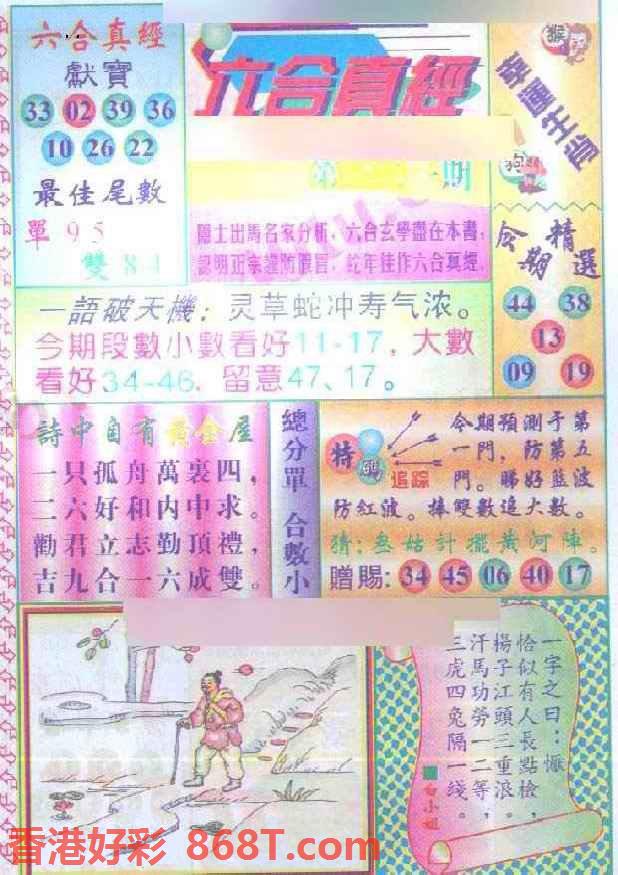 六合真經
獻寶
33 02 39 36
10 26 22
最佳尾數
單 9 5
雙 8 4
六合真經
第 期
隱士出馬名家分析，六合玄學盡在本書，
認明正宗謹防假冒，蛇年佳作六合真經。
猴
幸運生肖
狗
今期精選
44 38
13
09 19
一語破天機：灵草蛇冲寿气浓。
今期段數小數看好11-17，大數
看好34-46，留意47、17。
詩中自有黃金屋
一只孤舟萬裏四，
二六好和内中求。
勸君立志勤頂禮，
吉九合一六成雙。
總分單 合數小
特碼追踪
今期預測于第
一門，防第五
門。睇好藍波
防紅波。捧雙數追大數。
猜：叁姑計擺黃河陣。
贈賜：34 45 06 40 17
一字之曰：慨
恰似有人長點檢，
揚子江頭三重浪。
汗馬功勞一二等，
三虎四兔隔一綫。
白小姐
香港好彩 868T.com